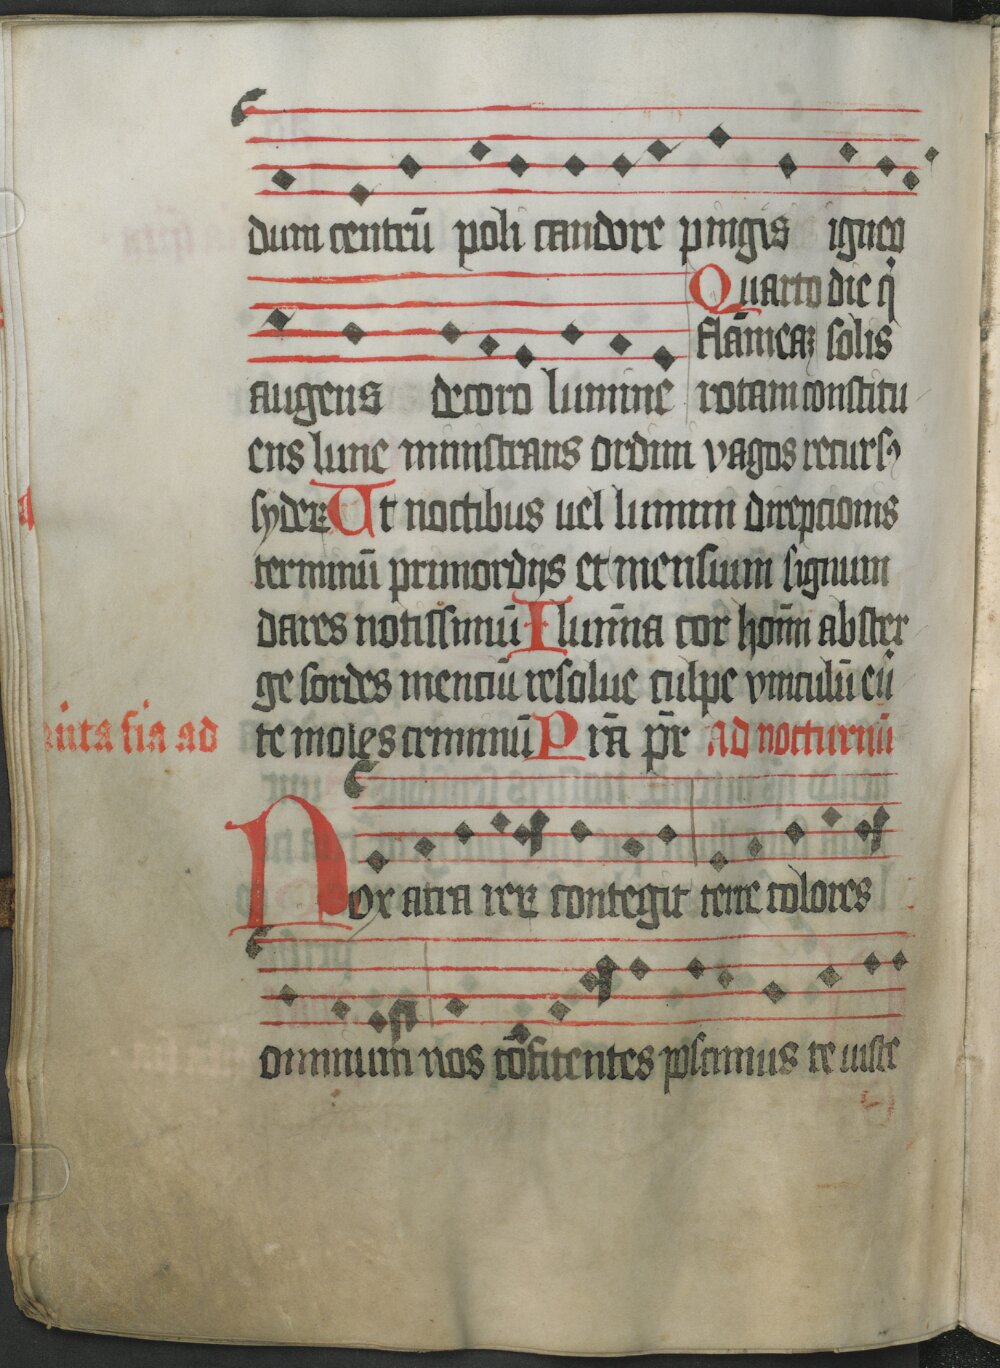 dum centrū poli candore pingis igneo
Quarto die q̇
flāmeaꝫ solis
augens decoro lumine rotam constitu
ens lune ministrans ordini vagos recursꝰ
syderꝝ Ut noctibus uel lumini direpcionis
terminū primordijs et mensium signum
dares notissimū Illumīna cor homīn abster
ge sordes menciū resolue culpe vinculū euer
te moles criminū Prā pr̄ ad nocturnū
quīta fīa ad
Nox atra rerꝝ contegit terre colores
omnium nos cōfitentes poscimus te iuste